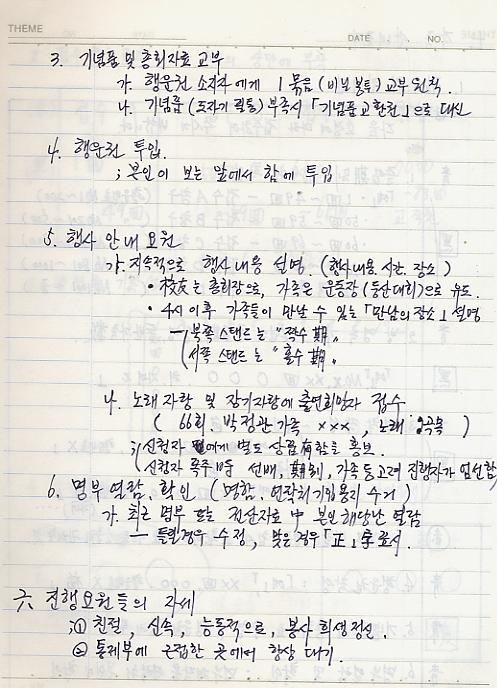 THEME
DATE NO.
3. 기념품 및 총회자료 교부
가. 행운권 소지자에게 1묶음 (비닐봉투) 교부원칙.
나. 기념품 (도자기 필통) 부족시 「기념품교환권」으로 대신
4. 행운권 투입.
; 본인이 보는 앞에서 함에 투입
5. 행사 안내 요원
가. 지속적으로 행사내용 설명. (행사내용. 시간. 장소)
• 校友는 총회장으로, 가족은 운동장(등산대회)으로 유도.
• 4시 이후 가족들이 만날 수 있는 「만남의 장소」 설명
북쪽 스탠드는 "짝수 期"
서쪽 스탠드는 "홀수 期"
나. 노래자랑 및 장기자랑에 출연희망자 접수
( 66회. 박정관 가족 ×××, 노래 곡목 )
; 신청자에게 별도 상품 有함을 홍보.
신청자 폭주 선배, 期別, 가족 등 고려 진행자가 엄선함
6. 명부 열람. 확인 (명함. 연락처기입용지 수거)
가. 최근 명부 또는 전산자료 中 본인해당난 열람
— 틀릴경우 수정, 맞은경우 「正」字 표시.
六 진행요원들의 자세
; ① 친절, 신속, 능동적으로, 봉사 희생정신.
② 통제부에 근접한 곳에서 항상 대기.